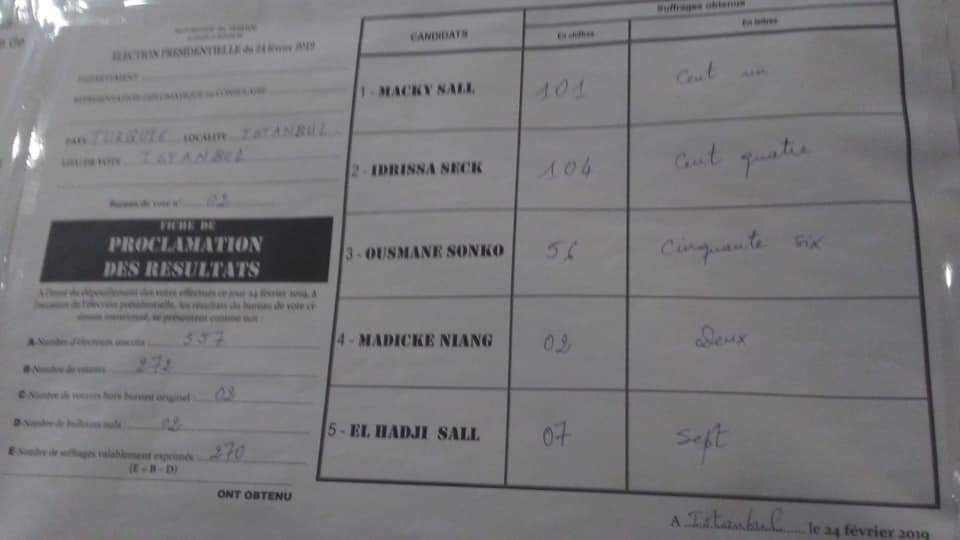 ELECTION PRESIDENTIELLE du 24 février 2019
DEPARTEMENT
REPRESENTATION DIPLOMATIQUE ou CONSULAIRE
PAYS TURQUIE LOCALITE ISTANBUL
LIEU DE VOTE ISTANBUL
Bureau de vote n° 02
FICHE DE
PROCLAMATION
DES RESULTATS
A l'issue du dépouillement des votes effectués ce jour 24 février 2019, à
l'occasion de l'élection présidentielle, les résultats du bureau de vote ci-
dessus mentionné, se présentent comme suit :
A-Nombre d'électeurs inscrits 557
B-Nombre de votants 272
C-Nombre de votants hors bureau originel 02
D-Nombre de bulletins nuls 02
E-Nombre de suffrages valablement exprimés 270
(E = B - D)
ONT OBTENU
Suffrages obtenus
CANDIDATS En chiffres En lettres
1 - MACKY SALL 101 Cent un
2 - IDRISSA SECK 104 Cent quatre
3 - OUSMANE SONKO 56 Cinquante six
4 - MADICKE NIANG 02 Deux
5 - EL HADJI SALL 07 Sept
A Istanbul le 24 février 2019